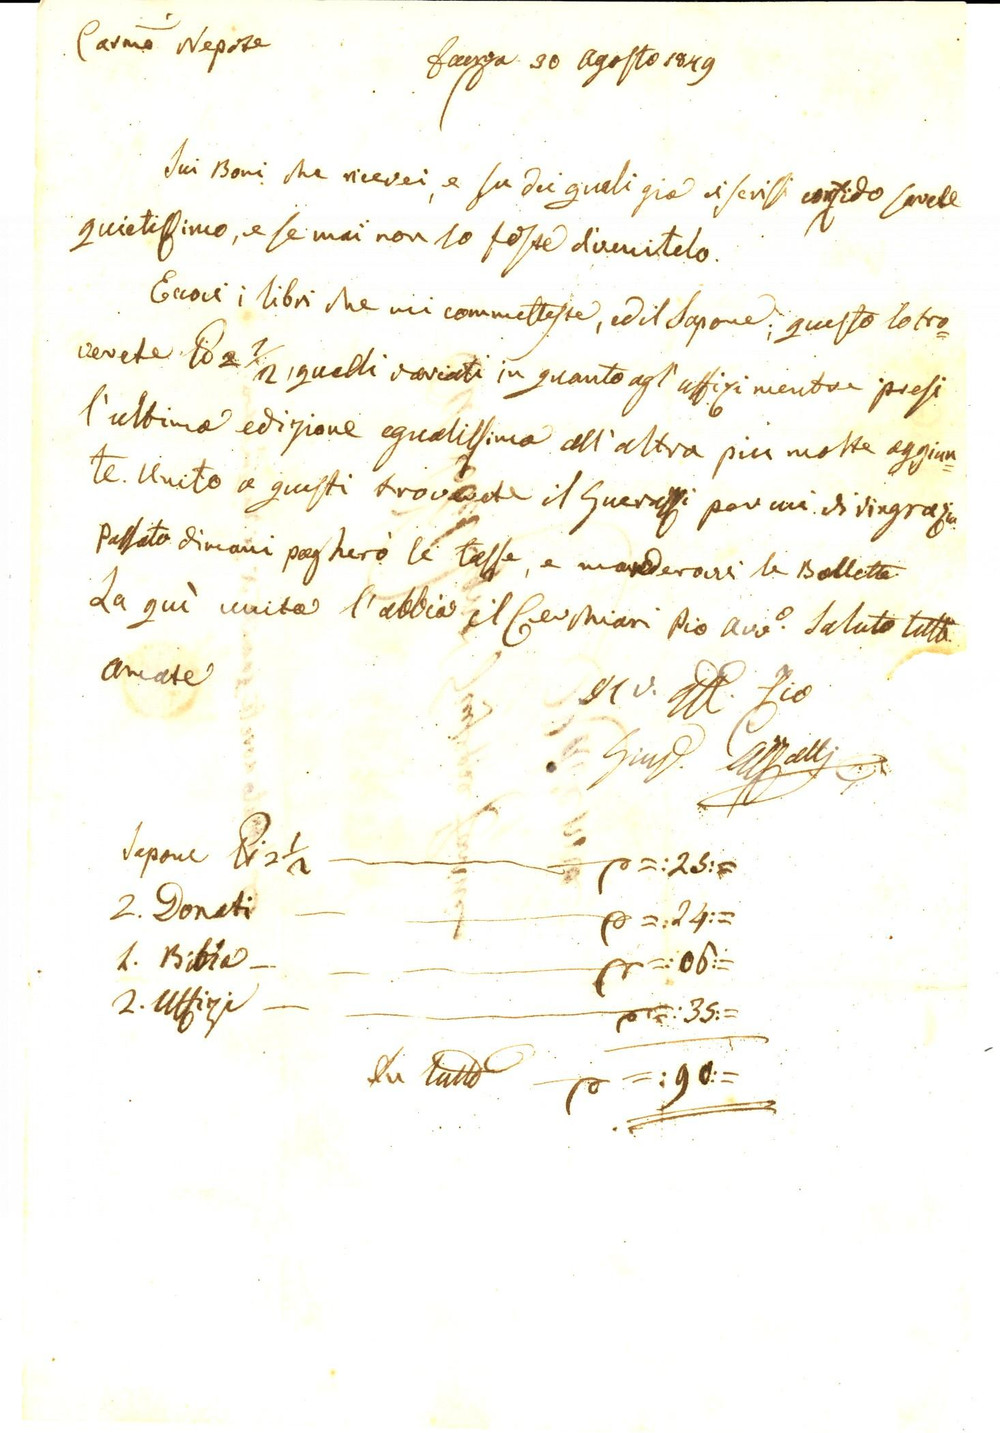 Carmo Nepote
Faenza 30 Agosto 1849
Sui Boni che ricevei, e su dei quali già vi scrissi confido sarete
quietissimo, e se mai non lo foste divenitelo.
Eccovi i libri che mi commetteste, ed il Sapone; questo lo tro=
verete 2 1/2, quelli variati in quanto agl'uffizi mentre presi
l'ultima edizione egualissima all'altra più molte aggiun=
te. Unito a questi troverete il per mi
Passato dimani pagherò le tasse, e manderovvi le Bollette
La quì unita l'abbia il Cerchiari Pio Avvo. Saluto tutti
amate
Il V. Aff. Zio
Giusp.
Sapone 2 1/2 =:25:=
2. Donati =:24:=
1. Bibia =:06:=
2. Uffizi =:35:=
In tutto =:90:=